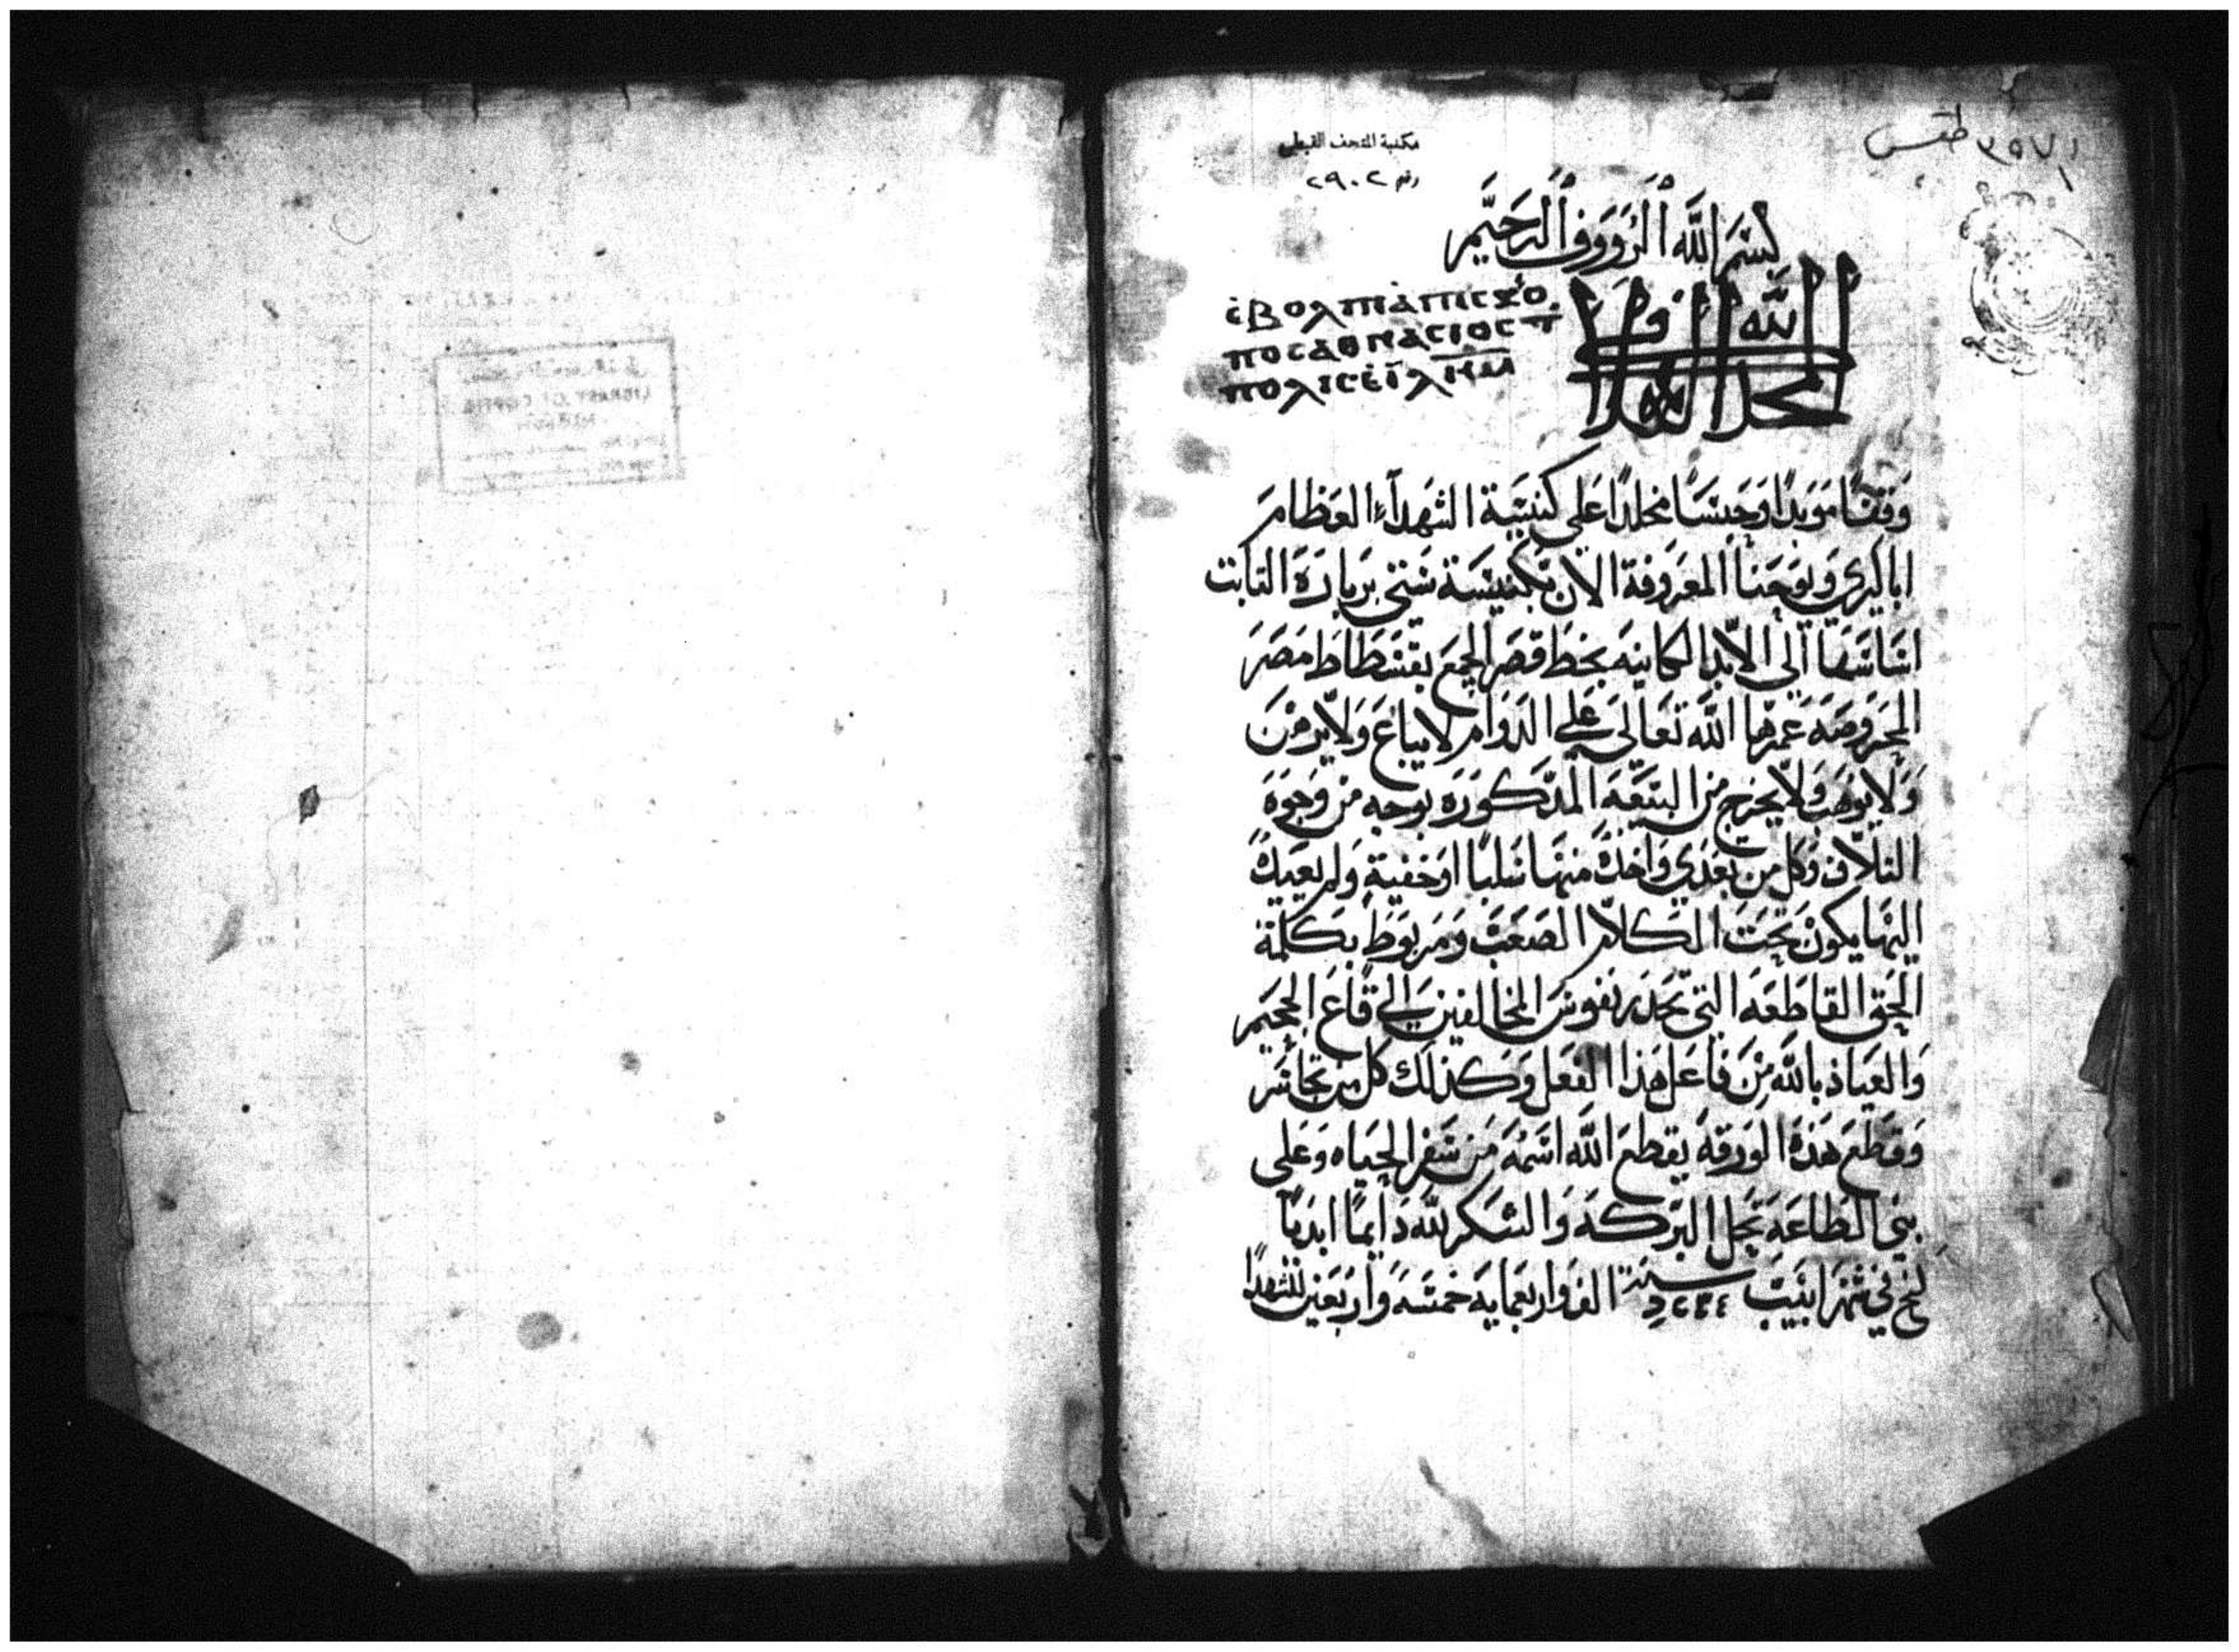 ٣٩٧١ طقس
مكتبة المتحف القبطي
رقم ٢٩٠٢
بسم الله الرووف الرحيم
ⲉⲃⲟⲗ
ⲡⲟⲥ ⲁⲑⲛⲁⲥⲓⲟⲥ
ⲡⲟⲗⲓⲥ
المجد لله
وقفًا موبدًا وحبسًا مخلدًا علي كنيسة الشهدآء العظام
اباكيري ويوحنا المعروفة الان بكنيسة ستي برباره الثابت
اساسها الي الابد الكاينه بخط قصر الجمع بفسطاط مصر
المحروصه عمرها الله تعالي علي الدوام لا يباع ولا يرهن
ولا يوهب ولا يخرج من البيعه المدكوره بوجه من وجوه
التلاف وكل من تعدي واخده منها سلبًا او خفية ولم يعيده
اليها يكون تحت الكلام الصعب ومربوط بكلمة
الحق القاطعه التي تحدر نفوس المخالفين الي قاع الجحيم
والعياذ بالله من فاعل هذا الفعل وكذلك كل من تجاسر
وقطع هذه الورقه يقطع الله اسمه من سفر الحياه وعلي
بني الطاعه تحل البركه والشكر لله دايمًا ابديًا
في شهر ابيب سنة الف واربعمايه خمسه واربعين للشهدا
LIBRARY OF COPTIC
MUSEUM